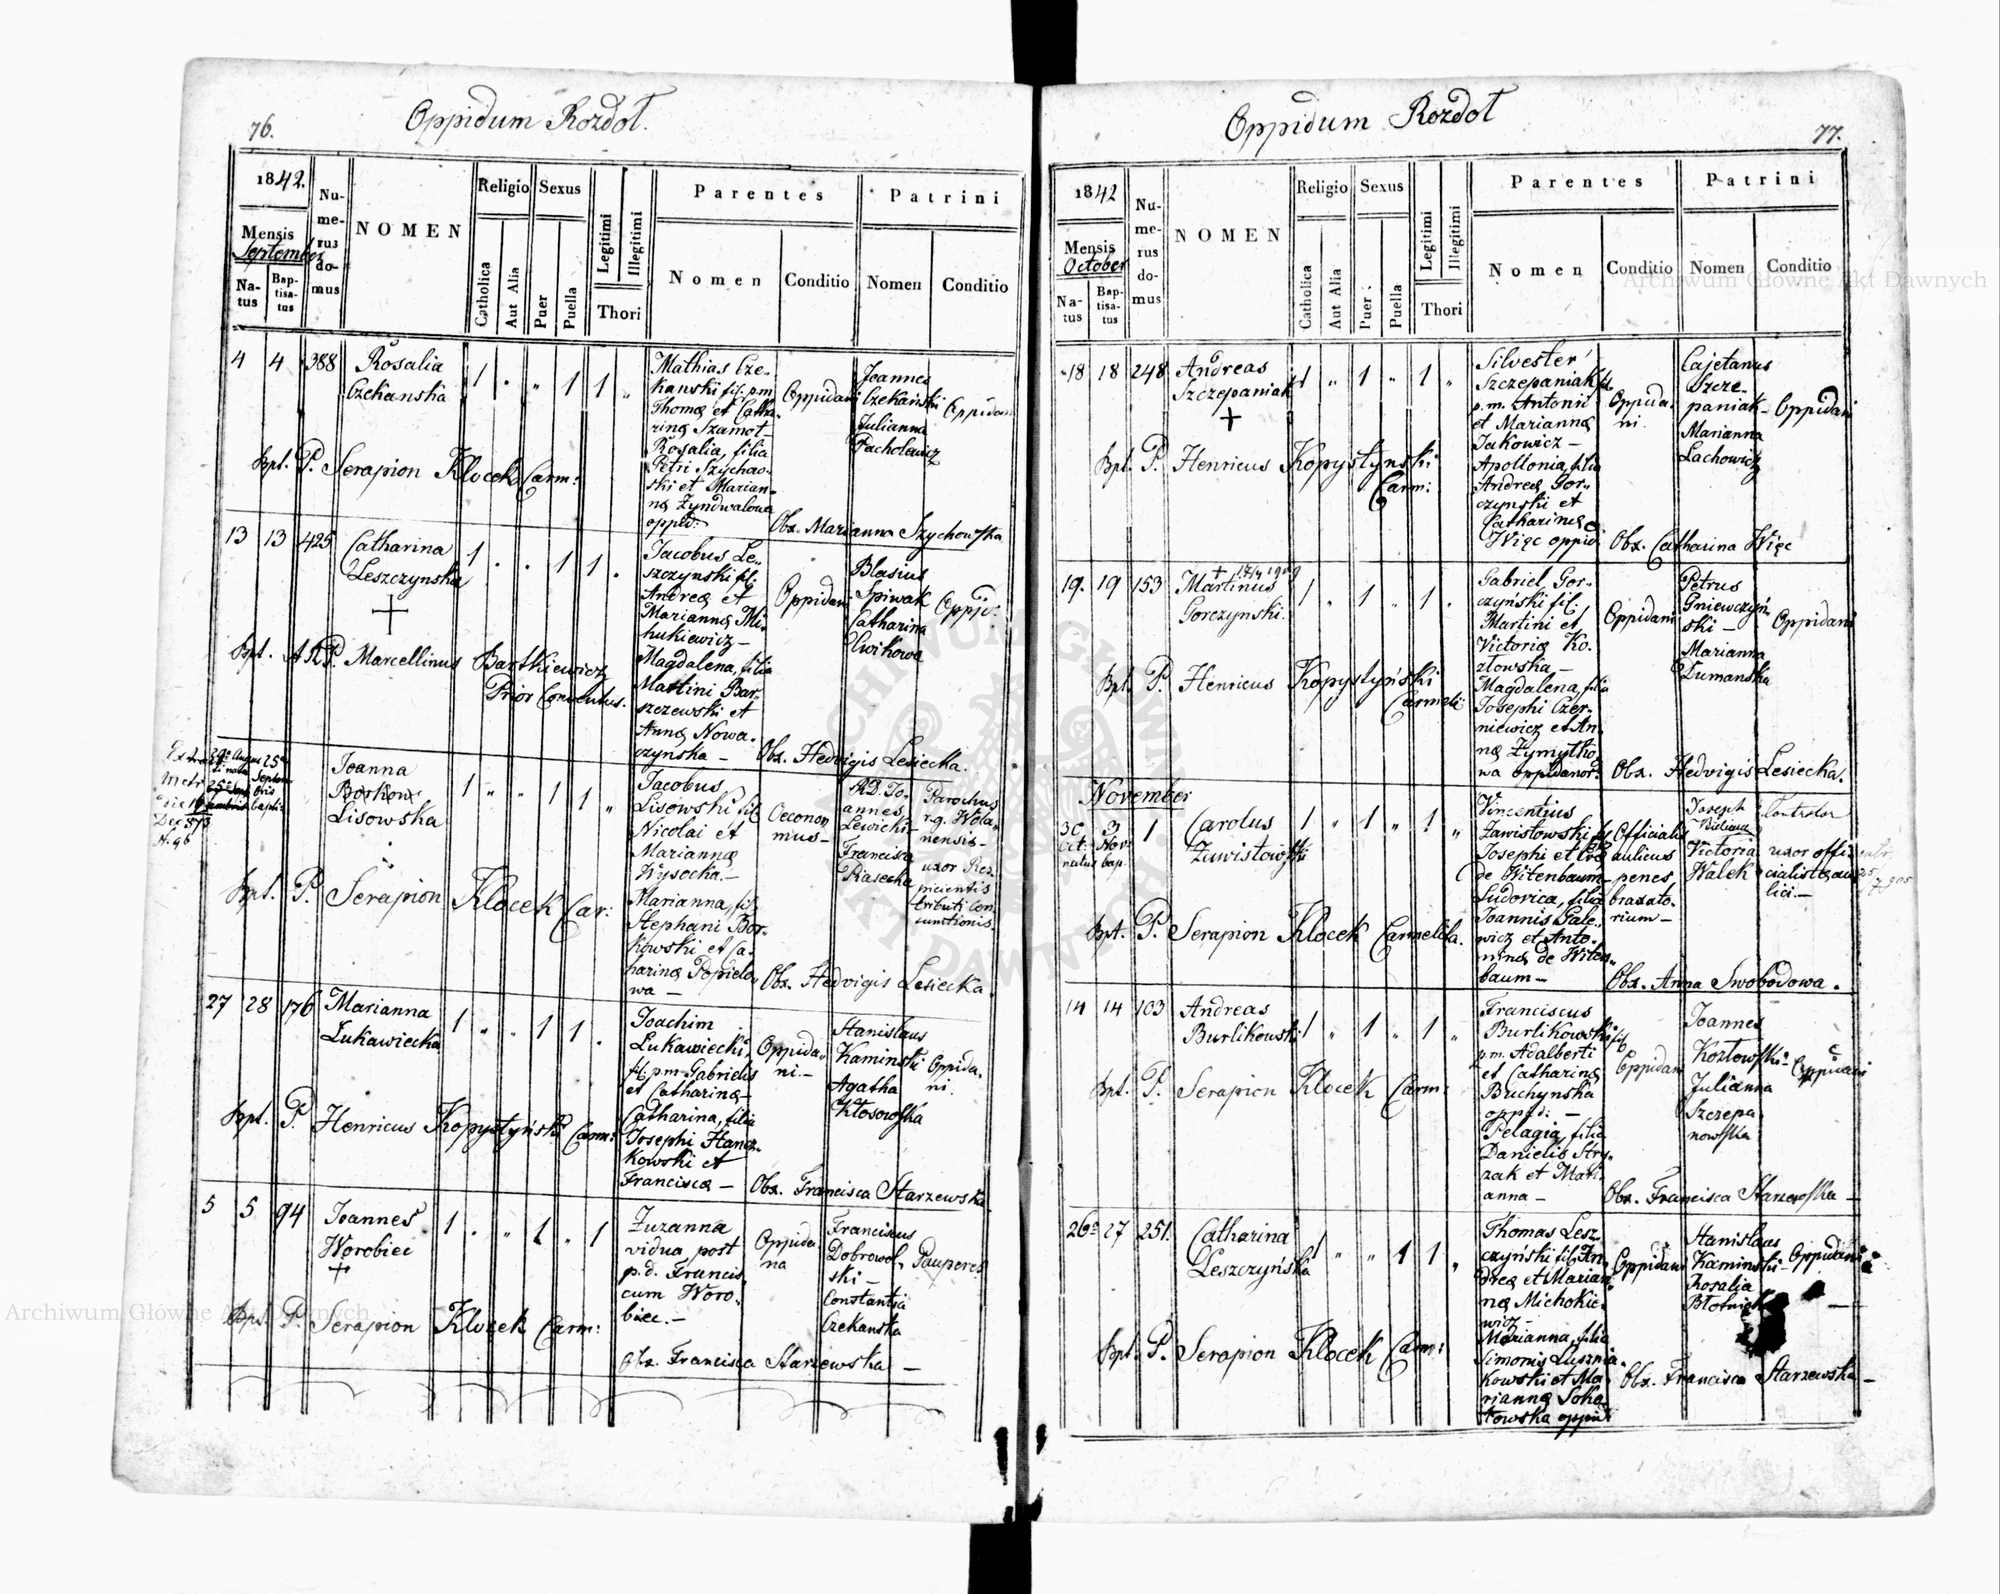 76.
Oppidum Rozdoł.
1842.
Mensis
September
Natus
Baptisatus
Numerus domus
NOMEN
Religio
Catholica
Aut Alia
Sexus
Puer
Puella
Legitimi
Illegitimi
Thori
Parentes
Nomen
Conditio
Patrini
Nomen
Conditio
4 4 388
Rosalia
Czekanska
1 1 1
Mathias Cze-
kanski fil. p.m.
Thomæ et Catha-
rinæ Szamot-
Rosalia, filia
Petri Szychow-
ski et Marian-
næ Zyndwalowa
oppid:
Oppidani
Joannes
Czekański
Julianna
Pacholewicz
Oppidani
Bpt. P. Serapion Klocek Carm:
Obx. Marianna Szychowska
13 13 425
Catharina
Leszczynska
1 1 1
Jacobus Le-
szczynski fil.
Andreæ et
Mariannæ Mi-
hukiewicz –
Magdalena, filia
Martini Bar-
szczewski et
Annæ Nowa-
czynska –
Oppidani
Blasius
Spiwak
Catharina
Cwikowa
Oppid.
Bpt. A R P. Marcellinus Bartkiewicz
Prior Conventus.
Obx. Hedvigis Lesiecka.
Joanna
Lisowska
1 1 1
Jacobus
Lisowski fil.
Nicolai et
Mariannæ
Wysocka. –
Marianna, fil.
Stephani Bor-
kowski et Ca-
harinæ Popiele-
wa –
Oeconomus –
RD. Jo-
annes
Lewicki –
Francisca
Piasecka
Parochus
r.g. Wola-
nensis –
uxor Rez-
picientis
tributi con-
sumtionis.
Bpt. P. Serapion Klocek Car:
Obx. Hedvigis Lesiecka.
27 28 176
Marianna
Łukawiecka
1 1 1
Joachim
Łukawiecki,
fil. p.m. Gabrielis
et Catharinæ –
Catharina, filia
Josephi Hancz-
kowski et
Franciscæ –
Oppida-
ni. –
Stanislaus
Kaminski
Agatha
Kłosowska
Oppida-
ni.
Bpt. P. Henricus Kopystyński Carm:
Obx. Francisca Starzewska
5 5 94
Joannes
Worobiec
1 1 1
Zuzanna
vidua post
p.d. Francis-
cum Woro-
biec. –
Oppida
na
Franciscus
Dobrowol-
ski –
Constantia
Czekanska
Pauperes
Bpt. P. Serapion Klocek Carm:
Obx. Francisca Starzewska –
77.
Oppidum Rozdoł
1842
Mensis
October
Natus
Baptisatus
Numerus domus
NOMEN
Religio
Catholica
Aut Alia
Sexus
Puer
Puella
Legitimi
Illegitimi
Thori
Parentes
Nomen
Conditio
Patrini
Nomen
Conditio
18 18 248
Andreas
Szczepaniak
1 1 1
Silvester
Szczepaniak fil.
p.m. Antonii
et Mariannæ
Jakowicz –
Apollonia, filia
Andreæ Gor-
czynski et
Catharinæ
Więc oppid.
Oppida-
ni.
Cajetanus
Szcze-
paniak –
Marianna
Lachowicz
Oppidani
Bpt. P. Henricus Kopystynski
Carm:
Obx. Catharina Więc
19. 19 153
Martinus
Gorczynski.
1 1 1
Gabriel Gor-
czyński fil.
Martini et
Victoriæ Ko-
złowska –
Magdalena, filia
Josephi Czer-
niewicz et An-
næ Zymytko-
wa oppidanor.
Oppidani
Petrus
Gniewczyń-
ski –
Marianna
Dumanska
Oppidani
Bpt. P. Henricus Kopystyński
Carmeli:
Obx. Hedvigis Lesiecka.
November
30 Oct. natus
3 Nov. bap.
1
Carolus
Zawistowski
1 1 1
Vincentius
Zawistowski fil.
Josephi et Evæ
de Witenbaum –
Ludovica, filia
Joannis Gale-
wicz et Anto-
ninæ de Witen-
baum –
Officialis
aulicus
penes
braxato-
rium –
Joseph
Victoria
Walek
uxor offi-
cialistæ au-
lici. –
Bpt. P. Serapion Klocek Carmelita.
Obx. Anna Swobodowa.
14 14 103
Andreas
Burlikowski
1 1 1
Franciscus
Burlikowski fil.
p.m. Adalberti
et Catharinæ
Buchynska
oppid: –
Pelagia, filia
Danielis Stry-
zak et Mari-
anna –
Oppidani
Joannes
Kozłowski –
Julianna
Szczepa
nowska
Oppidani
Bpt. P. Serapion Klocek Carm:
Obx. Francisca Starzewska –
26 27 251.
Catharina
Leszczyńska
1 1 1
Thomas Lesz-
czyński fil. An-
dreæ et Marian-
næ Michokie-
wicz –
Marianna, filia
Simonis Luzznia-
kowski et Ma-
riannæ Soko-
łowska oppid.
Oppidani
Stanislaus
Kaminski –
Rosalia
Oppidani
Bpt. P. Serapion Klocek Carm:
Obx. Francisca Starzewska –
Archiwum Główne Akt Dawnych
Archiwum Główne Akt Dawnych
ARCHIWUM GŁÓWNE AKT DAWNYCH